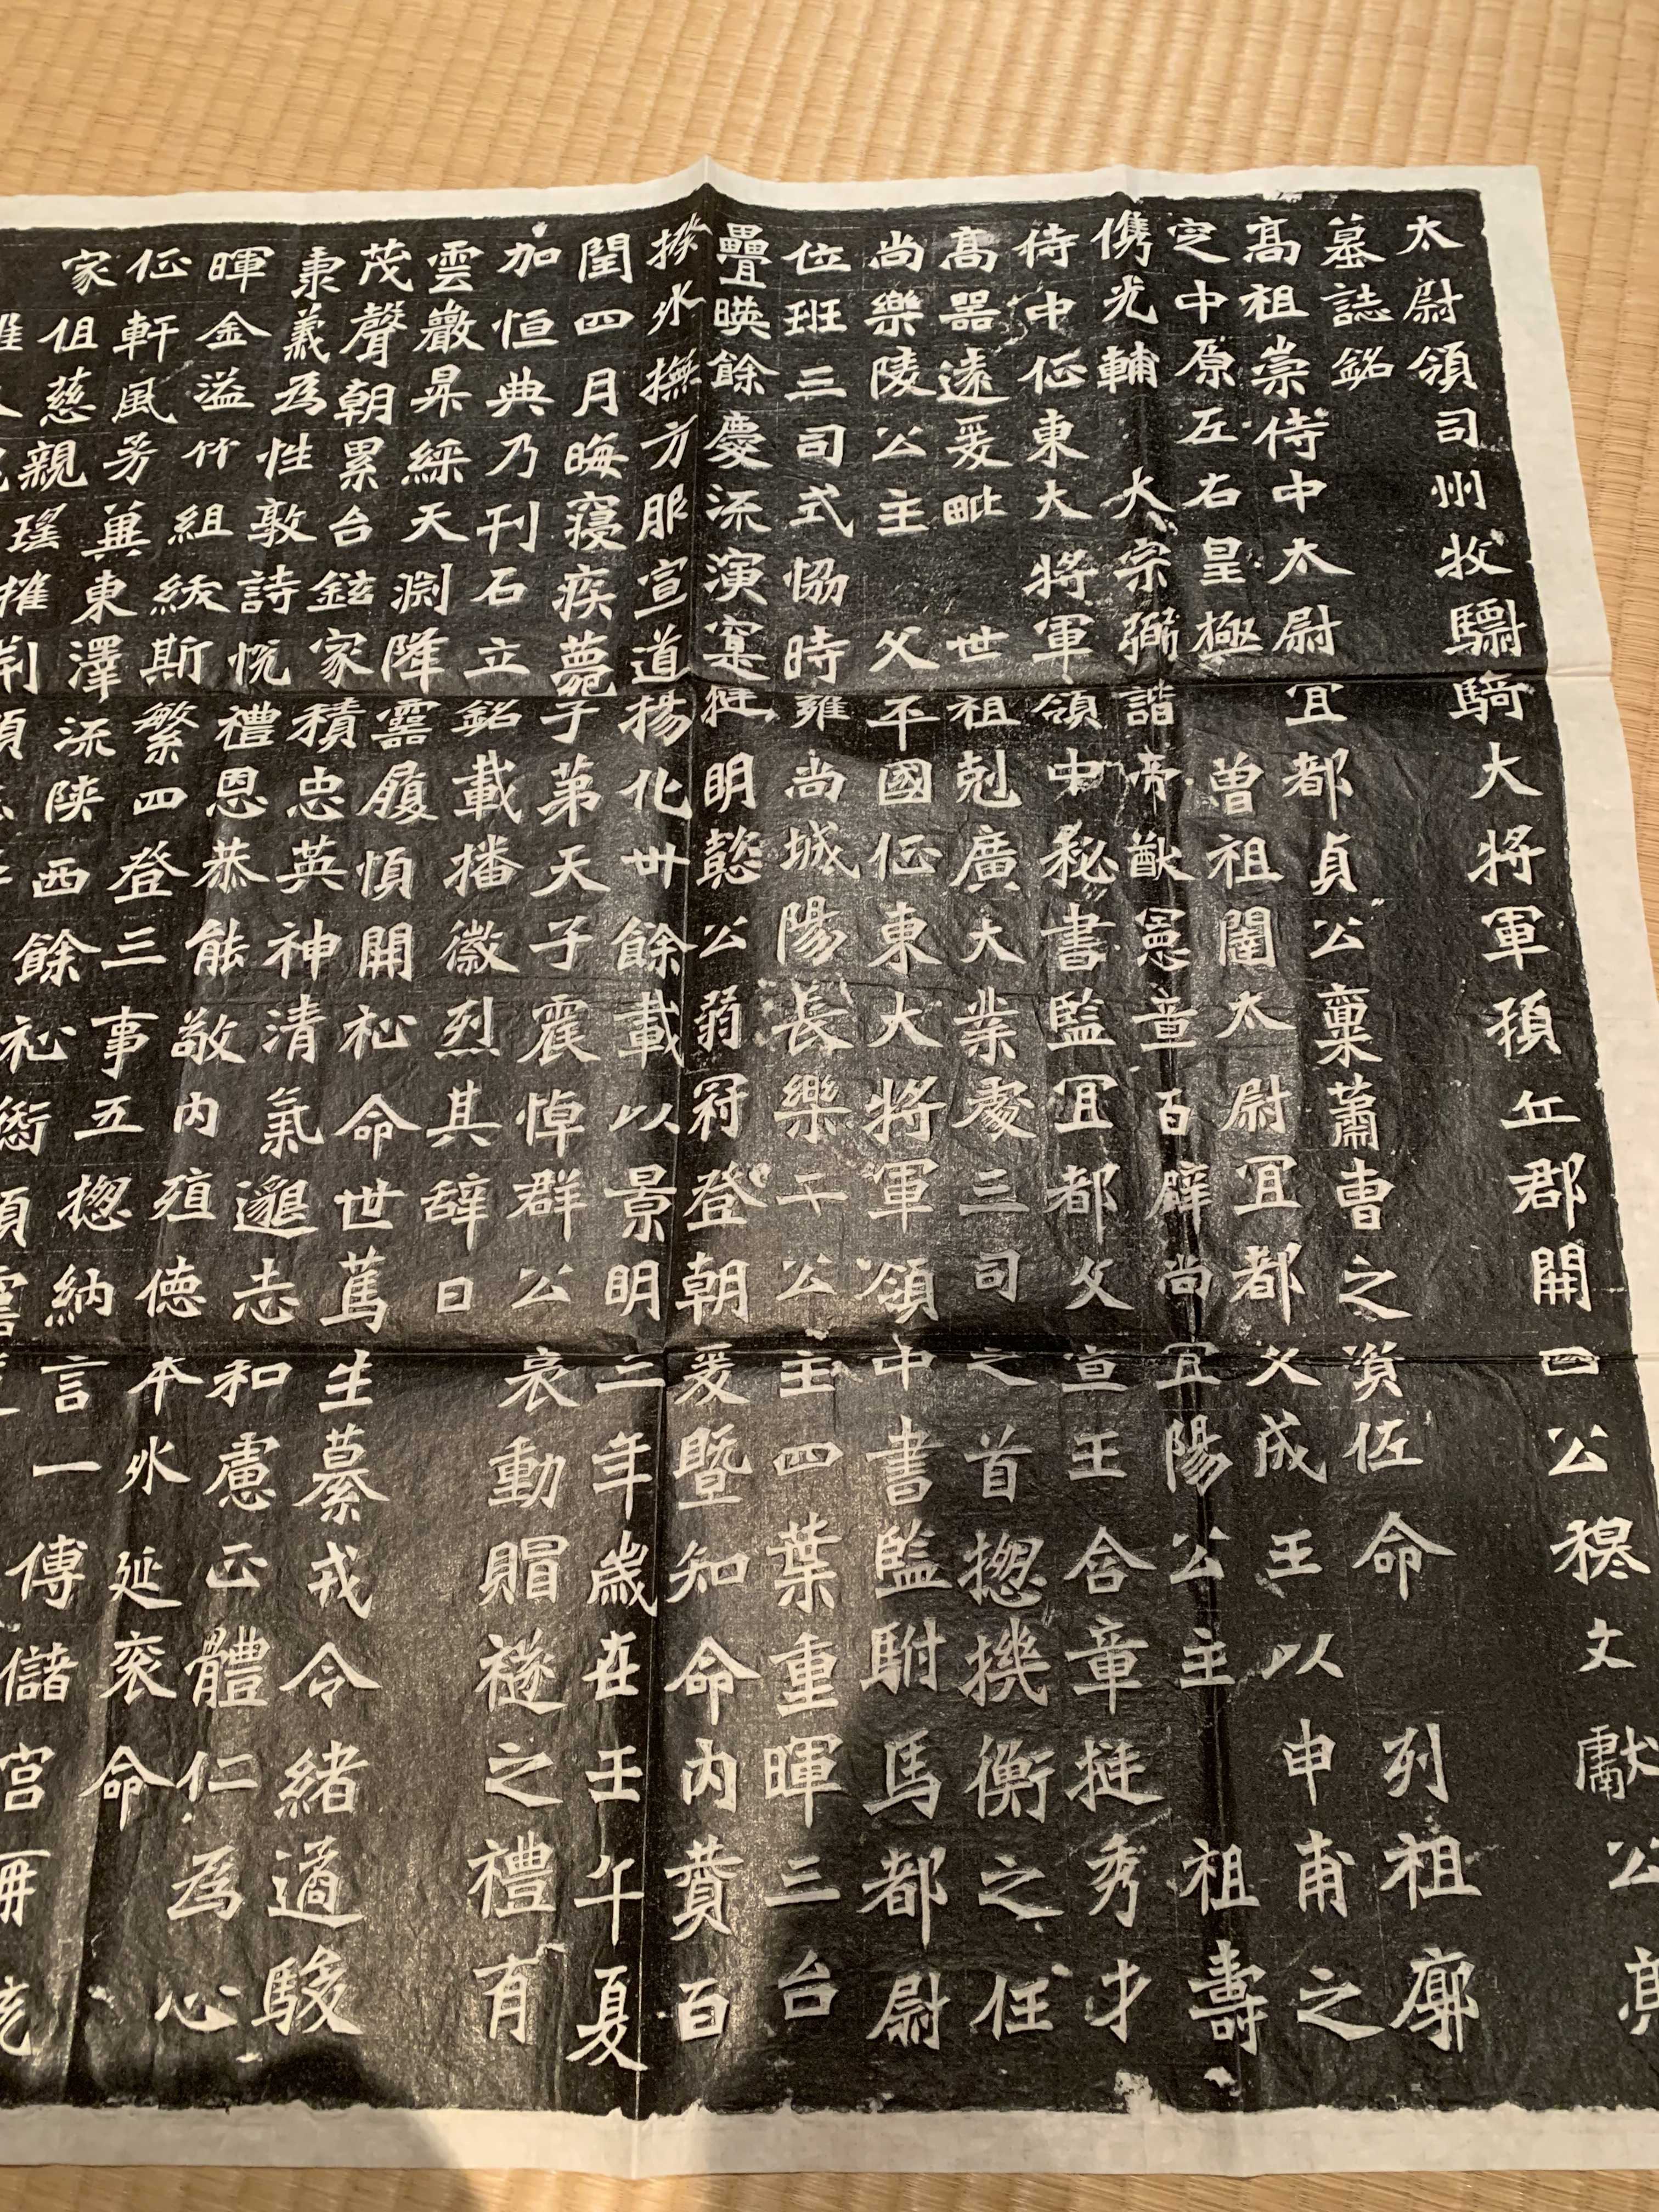 太尉領司州牧驃騎大將軍頓丘郡開國公穆文獻公亮
墓誌銘
高祖崇侍中太尉宜都貞公稟蕭曹之資佐命列祖廓
定中原左右皇極曾祖闥太尉宜都文成王以申甫之
儁光輔大宗彌諧帝猷憲章百辟尚宜陽公主祖壽
侍中征東大將軍領中秘書監宜都文宣王含章挺秀才
高器遠爰毗世祖剋廣大業處三司之首揔機衡之任
尚樂陵公主父平國征東大將軍領中書監駙馬都尉
位班三司式協時雍尚城陽長樂二公主四葉重暉三台
疊暎餘慶流演寔挺明懿公弱冠登朝爰暨知命內賛百
揆外撫方服宣道揚化卅餘載以景明三年歲在壬午夏
閏四月晦寢疾薨于第天子震悼群公哀動賵襚之禮有
加恒典乃刊石立銘載播徽烈其辭曰
雲巖昇綵天渊降靈履順開祉命世篤生纂戎令緒遹駿
茂聲朝累台鉉家積忠英神清氣邈志和慮正體仁為心
秉義為性敦詩悅禮恩恭能敬內殖德本外延袞命
暉金溢竹組紱斯繁四登三事五揔納言一傅儲宮再統
征軒風芳冀東澤流陝西餘祉
家 慈親瑤摧荊